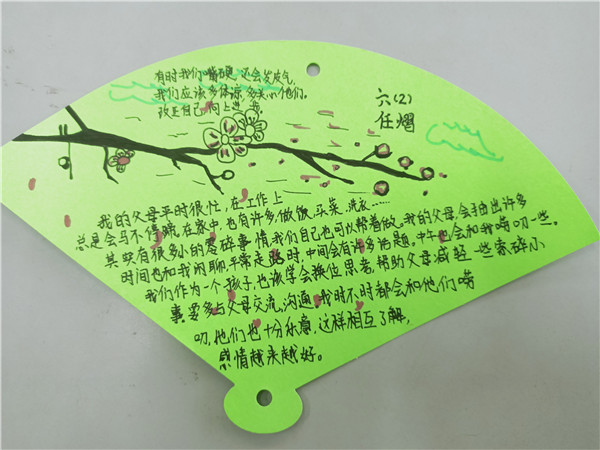 有时我们嘴硬,还会发皮气,
我们应该多体凉,多关心他们。
改正自己,向上进步
六(2)
任熠
我的父母平时很忙,在工作上
总是会马不停蹄,在家中,也有许多做饭、买菜、洗衣……
其实有很多小的零碎事情我们自己也可以帮着做。我的父母,会抽出许多
时间也和我闲聊,平常走路时,中间会有许多话题。中午也会和我唠叨一些。
我们作为一个孩子,也该学会换位思考,帮助父母减轻一些家碎小
事,要多与父母交流,沟通,我时不时都会和他们唠
叨,他们也十分乐意,这样相互了解,
感情越来越好。